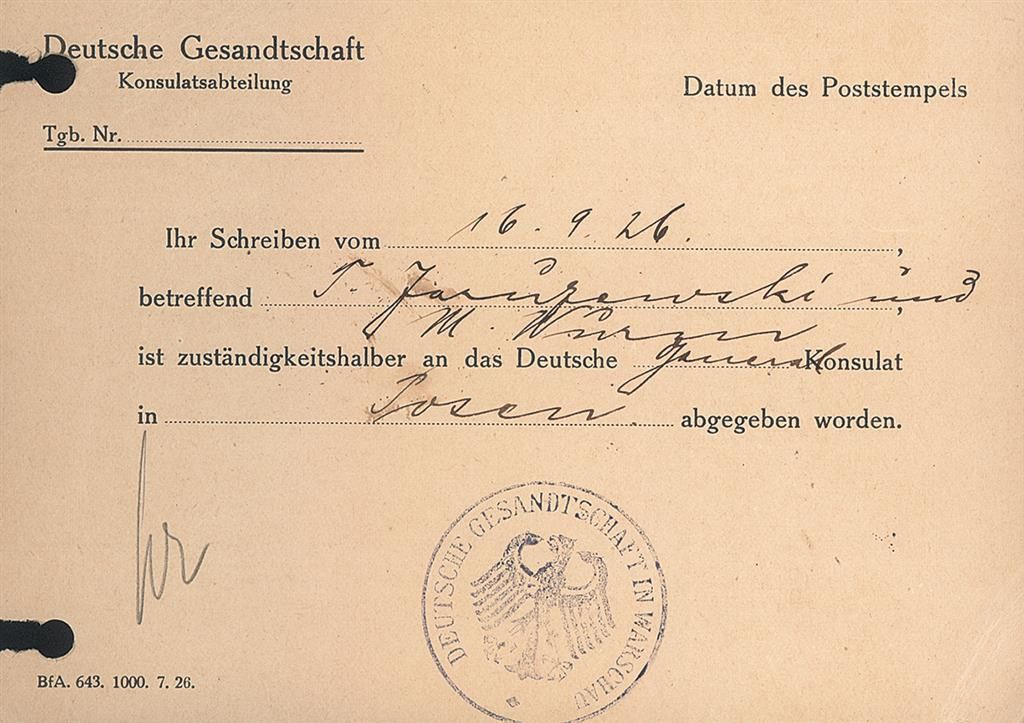 Deutsche Gesandtschaft
Konsulatsabteilung
Datum des Poststempels
Tgb. Nr.
Ihr Schreiben vom 16. 9. 26.,
betreffend T. Jaruzewski und,
M. Wurzer
ist zuständigkeitshalber an das Deutsche General Konsulat
in Posen abgegeben worden.
DEUTSCHE GESANDTSCHAFT IN WARSCHAU
BfA. 643. 1000. 7. 26.